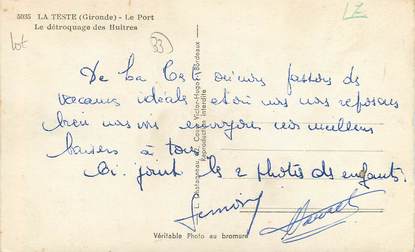 5035 LA TESTE (Gironde) - Le Port
Le détroquage des Huîtres
LZ
lot
33
De La Teste où nous passons des
vacances idéales et où nous nous reposons
bien nous vous envoyons nos meilleurs
baisers à tous
Ci joint les 2 photos des enfants.
L. Chatagneau, 72, Cours Victor-Hugo - Bordeaux
Reproduction interdite
Véritable Photo au bromure